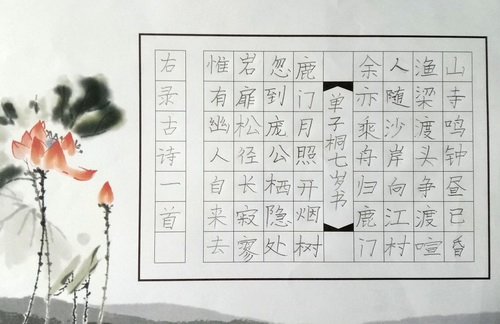 山寺鸣钟昼已昏
渔梁渡头争渡喧
人随沙岸向江村
余亦乘舟归鹿门
单子桐七岁书
鹿门月照开烟树
忽到庞公栖隐处
岩扉松径长寂寥
惟有幽人自来去
右录古诗一首